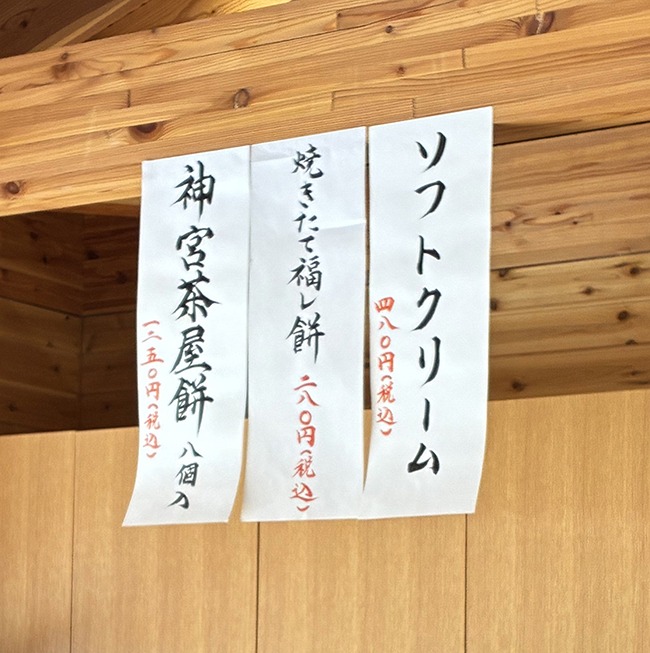 ソフトクリーム
四八〇円(税込)
焼きたて福し餅 二八〇円(税込)
神宮茶屋餅 八個入
一二五〇円(税込)